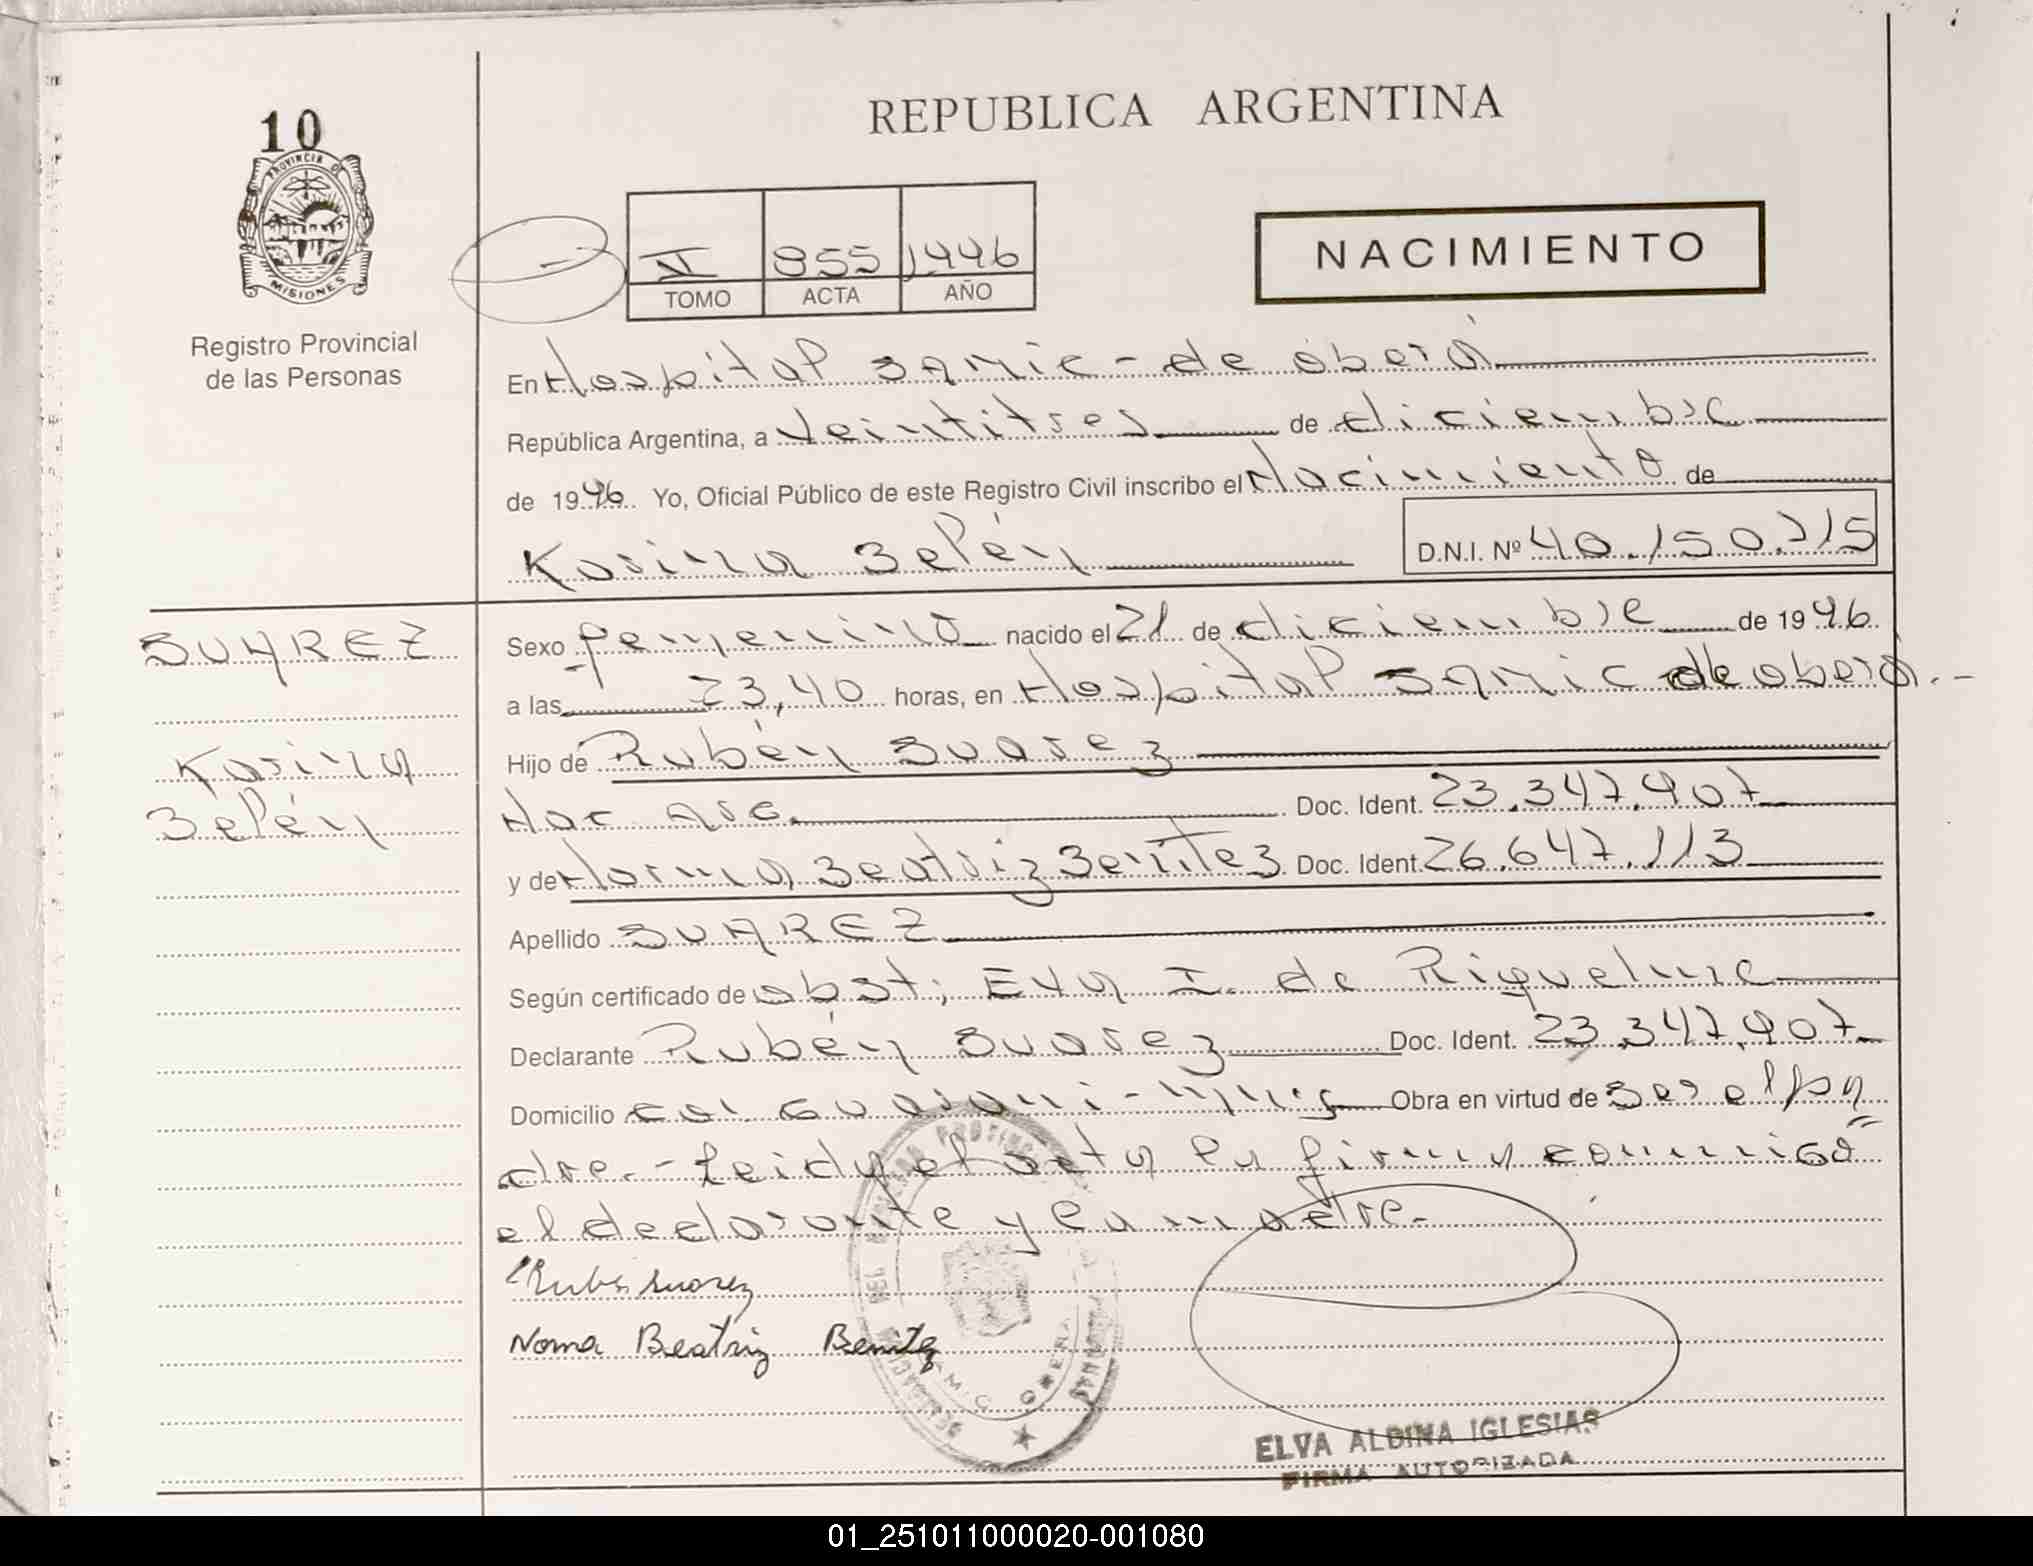 REPUBLICA ARGENTINA
10
PROVINCIA DE
MISIONES
Registro Provincial
de las Personas
II 855 1996
TOMO ACTA AÑO
NACIMIENTO
En Hospital SAMIC - de Oberá
República Argentina, a Veintitres de diciembre
de 1996. Yo, Oficial Público de este Registro Civil inscribo el Nacimiento de
Karina Belén D.N.I. Nº 40.150.715
SUAREZ
Karina
Belén
Sexo femenino nacido el 21 de diciembre de 1996.
a las 23,40 horas, en Hospital SAMIC de Oberá.-
Hijo de Rubén Suarez
Nac. Arg. Doc. Ident. 23.347.907
y de Norma Beatriz Benitez. Doc. Ident. 26.647.113
Apellido SUAREZ
Según certificado de obst; Eva I. de Riquelme
Declarante Rubén Suarez Doc. Ident. 23.347.907
Domicilio Col. Guaraní - Obra en virtud de Ser el pa
dre.- Leidy el acta la firman conmigo
el declarante y la madre.-
Rubén Suarez
Norma Beatriz Benitez
OBERA
ELVA ALBINA IGLESIAS
FIRMA AUTORIZADA
01_251011000020-001080